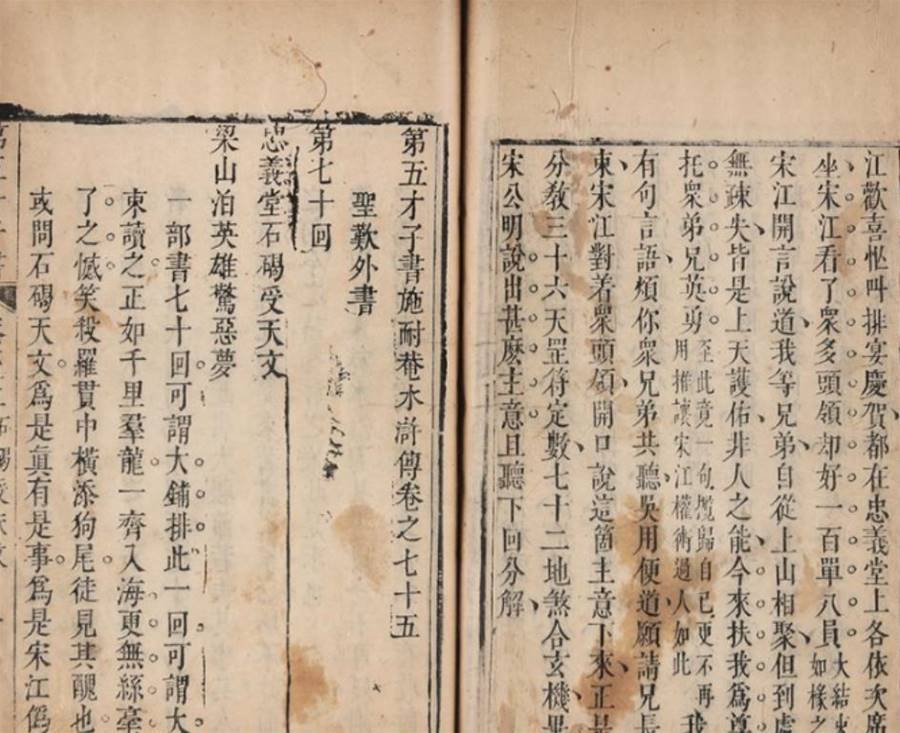 江歡喜忙叫排宴慶賀都在忠義堂上各依次席
坐宋江看了衆多頭領却好一百單八員大結束如椽之
宋江開言說道我等兄弟自從上山相聚但到處
無疎失皆是上天護佑非人之能今來扶我爲尊
托衆弟兄英勇至此竟一句攬歸自己更不再用推讓宋江權術過人如此我
有句言語煩你衆兄弟共聽吳用便道願請兄長
東宋江對着衆頭領開口說這箇主意下來正是
分敎三十六天罡符定數七十二地煞合玄機畢
宋公明說出甚麽主意且聽下回分解
第五才子書施耐菴水滸傳卷之七十五
聖歎外書
第七十回
忠義堂石碣受天文
梁山泊英雄驚惡夢
一部書七十回可謂大鋪排此一回可謂大
束讀之正如千里羣龍一齊入海更無絲毫
了之憾笑殺羅貫中橫添狗尾徒見其醜也
或問石碣天文爲是眞有是事爲是宋江僞